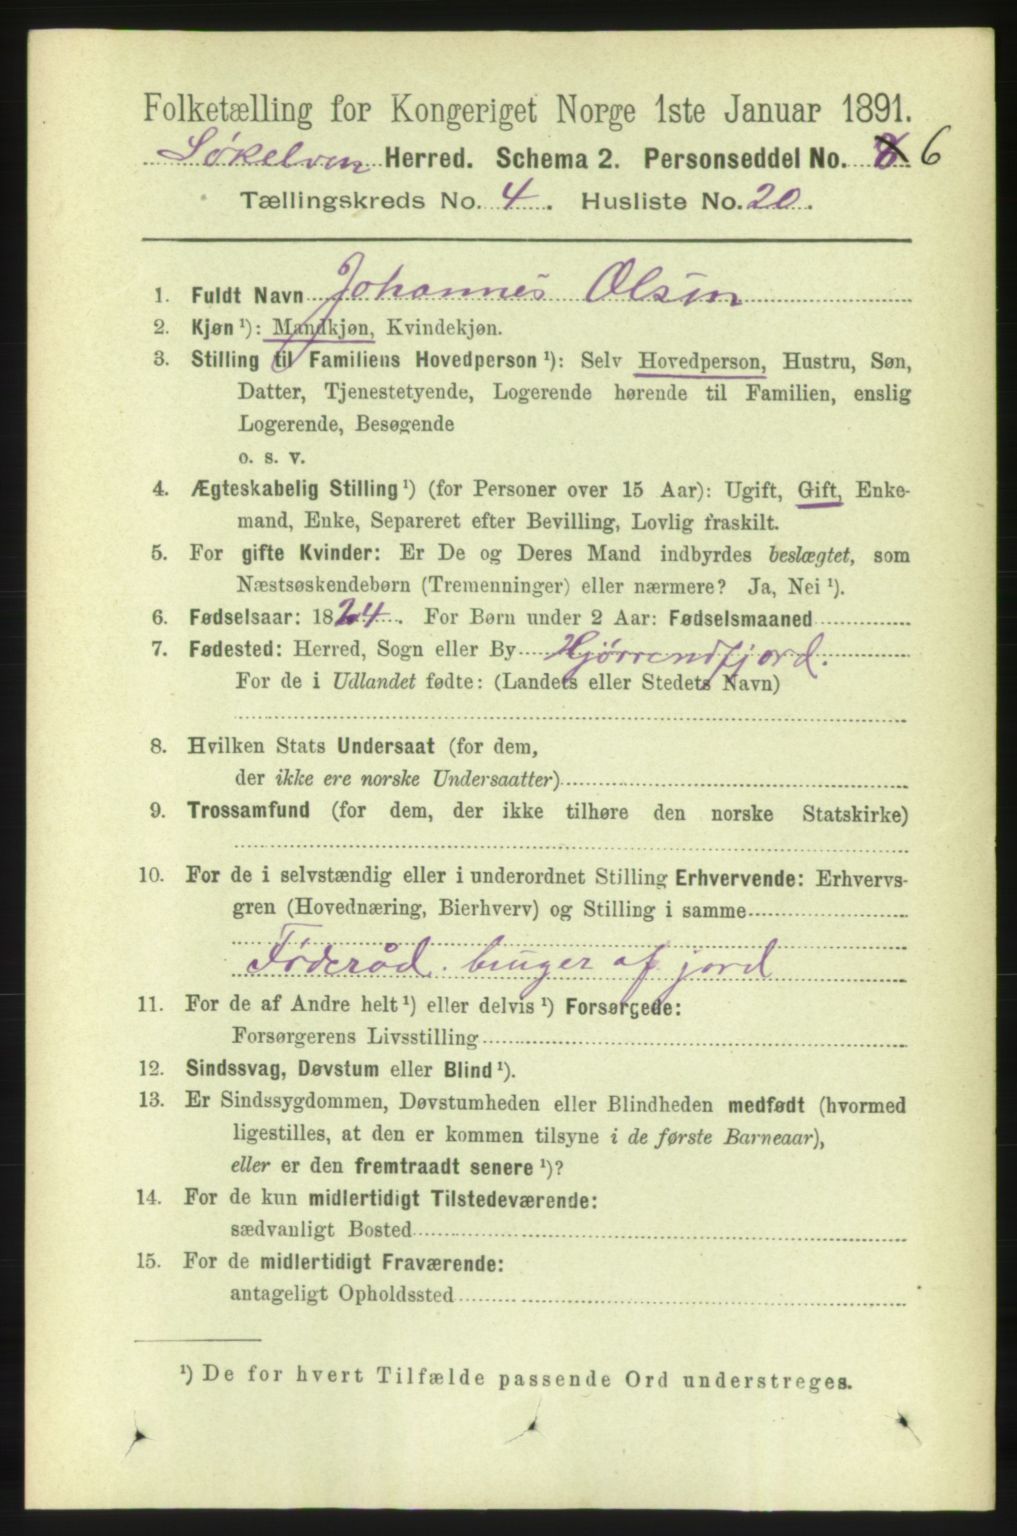 Folketælling for Kongeriget Norge 1ste Januar 1891.
Søkelven Herred. Schema 2. Personseddel No. 8 6
Tællingskreds No. 4. Husliste No. 20.
1. Fuldt Navn Johannes Olsen
2. Kjøn ¹): Mandkjøn, Kvindekjøn.
3. Stilling til Familiens Hovedperson ¹): Selv Hovedperson, Hustru, Søn,
Datter, Tjenestetyende, Logerende hørende til Familien, enslig
Logerende, Besøgende
o. s. v.
4. Ægteskabelig Stilling ¹) (for Personer over 15 Aar): Ugift, Gift, Enke-
mand, Enke, Separeret efter Bevilling, Lovlig fraskilt.
5. For gifte Kvinder: Er De og Deres Mand indbyrdes beslægtet, som
Næstsøskendebørn (Tremenninger) eller nærmere? Ja, Nei ¹).
6. Fødselsaar: 1824. For Børn under 2 Aar: Fødselsmaaned
7. Fødested: Herred, Sogn eller By Hjørrendfjord.
For de i Udlandet fødte: (Landets eller Stedets Navn)
8. Hvilken Stats Undersaat (for dem,
der ikke ere norske Undersaatter)
9. Trossamfund (for dem, der ikke tilhøre den norske Statskirke)
10. For de i selvstændig eller i underordnet Stilling Erhvervende: Erhvervs-
gren (Hovednæring, Bierhverv) og Stilling i samme
Føderåd. bruger af jord
11. For de af Andre helt ¹) eller delvis ¹) Forsørgede:
Forsørgerens Livsstilling
12. Sindssvag, Døvstum eller Blind ¹).
13. Er Sindssygdommen, Døvstumheden eller Blindheden medfødt (hvormed
ligestilles, at den er kommen tilsyne i de første Barneaar),
eller er den fremtraadt senere ¹)?
14. For de kun midlertidigt Tilstedeværende:
sædvanligt Bosted
15. For de midlertidigt Fraværende:
antageligt Opholdssted
¹) De for hvert Tilfælde passende Ord understreges.